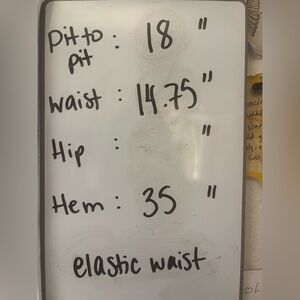 Pit to : 18 "
pit
waist : 14.75 "
Hip : "
Hem : 35 "
elastic waist